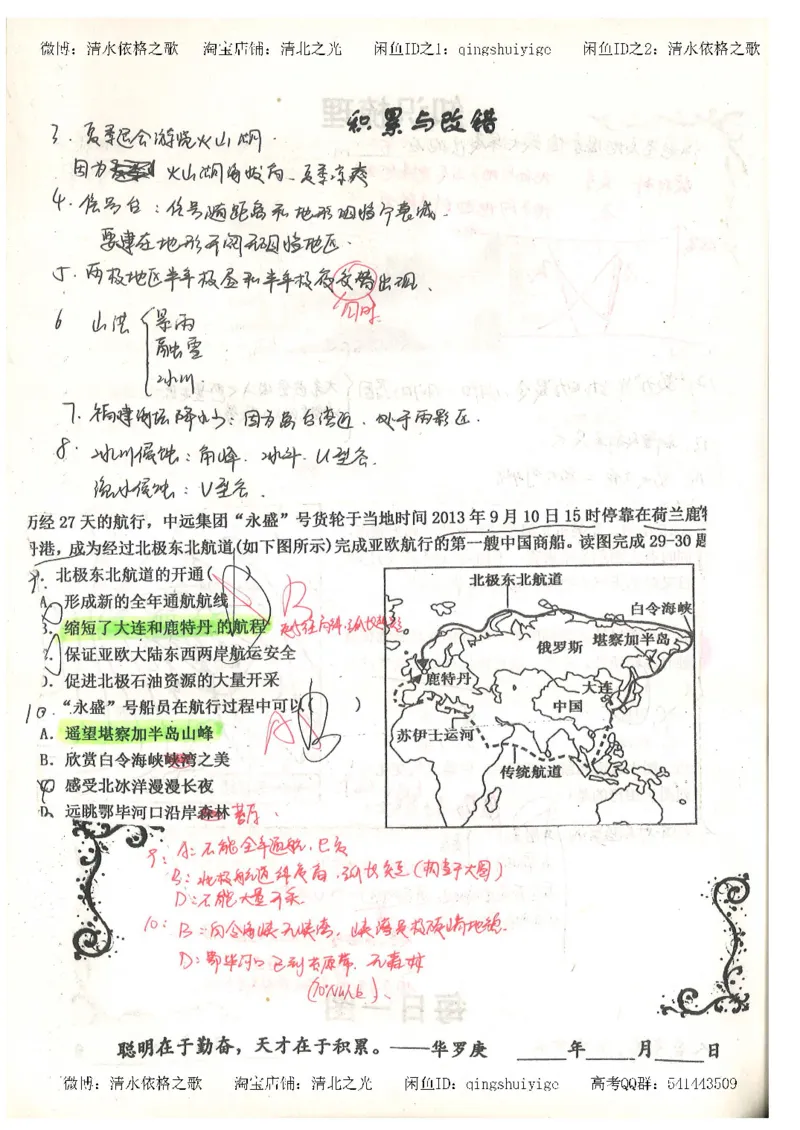 微博：清水依格之歌 淘宝店铺：清北之光 闲鱼ID之1：qingshuiyige 闲鱼ID之2：清水依格之歌
积累与改错
3. 夏季适合游览火山湖.
因为 火山湖海拔高、夏季凉爽
4. 信号台：信号随距离和地形阻挡个衰减.
要建在地形开阔无阻挡地区.
5. 两极地区半年极昼和半年极夜交替出现.
同时
6 山洪 暴雨
融雪
冰川
7. 福建海坛降水少：因为离台湾近，处于雨影区.
8. 冰川侵蚀：角峰．冰斗．U型谷.
流水侵蚀：V型谷．
历经 27 天的航行，中远集团“永盛”号货轮于当地时间 2013 年 9 月 10 日 15 时停靠在荷兰鹿特
丹港，成为经过北极东北航道(如下图所示)完成亚欧航行的第一艘中国商船。读图完成 29-30 题
9. 北极东北航道的开通( ) B
A. 形成新的全年通航航线
缩短了大连和鹿特丹的航程
保证亚欧大陆东西两岸航运安全
D. 促进北极石油资源的大量开采
10. “永盛”号船员在航行过程中可以( ) B
A
A. 遥望堪察加半岛山峰
B. 欣赏白令海峡峡湾之美
感受北冰洋漫漫长夜
D. 远眺鄂毕河口沿岸森林 苔原．
北极东北航道
白令海峡
俄罗斯
堪察加半岛
鹿特丹
大连
中国
苏伊士运河
传统航道
9：A：不能全年通航，
B：北极航道纬度高．弧长短
D：不能大量开采
10：B：白令海峡无峡湾，峡湾是
D：鄂毕河口 无森林
聪明在于勤奋，天才在于积累。——华罗庚 年 月 日
微博：清水依格之歌 淘宝店铺：清北之光 闲鱼ID：qingshuiyige 高考QQ群：541443509